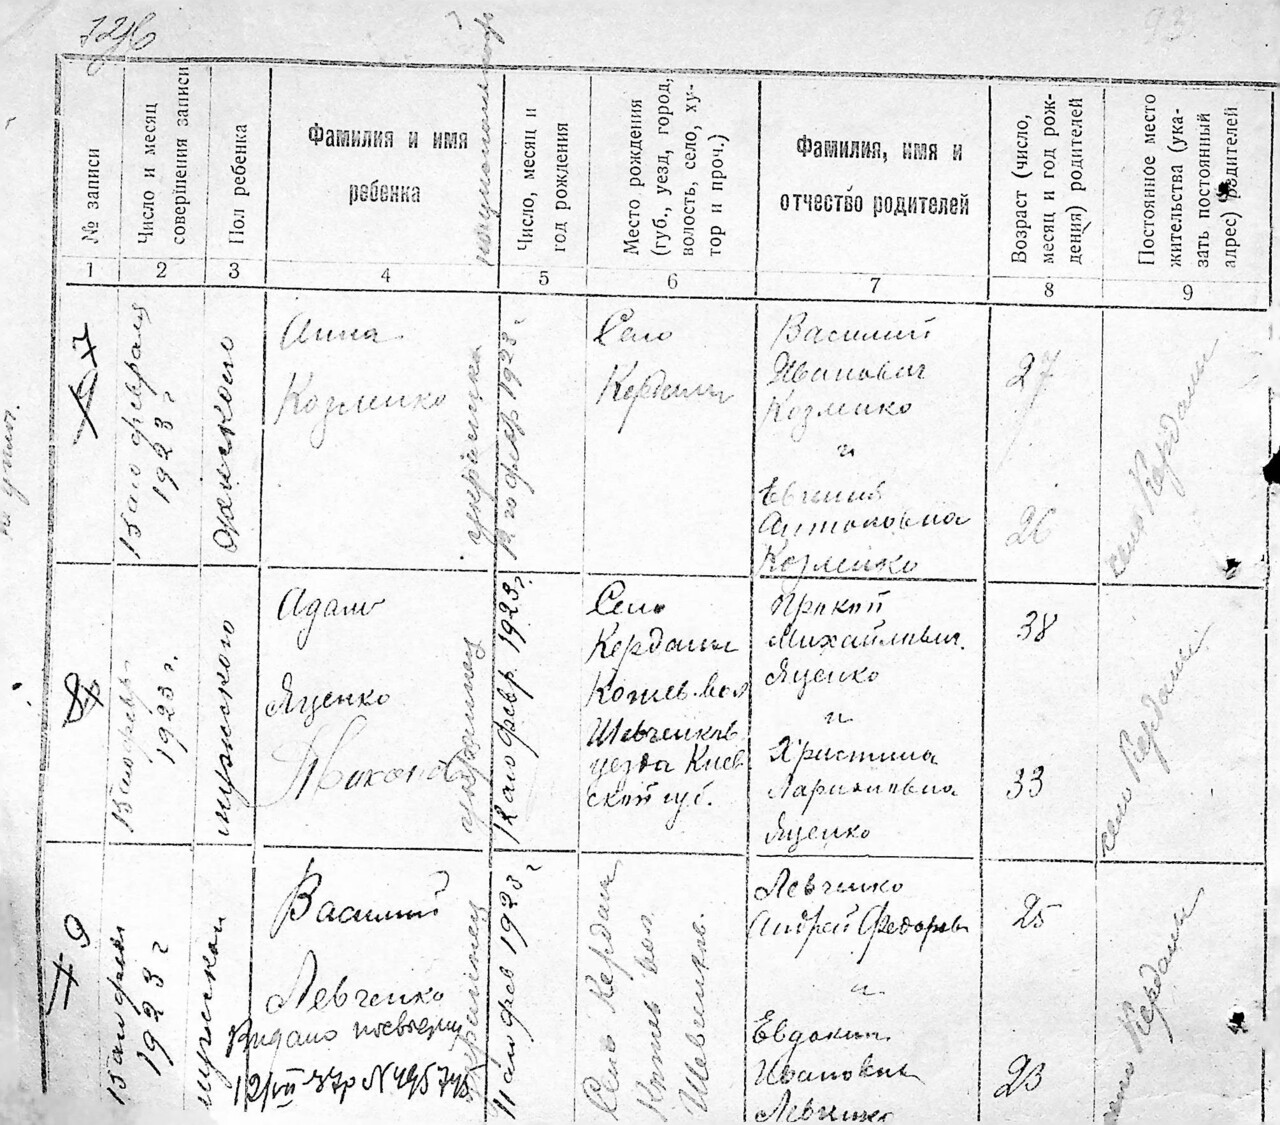 93.
№ записи
Число и месяц
совершения записи
Пол ребенка
Фамилия и имя
ребенка
Число, месяц и
год рождения
Место рождения
(губ., уезд, город,
волость, село, ху-
тор и проч.)
Фамилия, имя и
отчество родителей
Возраст (число,
месяц и год рож-
дения) родителей
Постоянное место
жительства (ука-
зать постоянный
адрес) родителей
1 2 3 4 5 6 7 8 9
7
15го февраля
1923 г
женского
Анна
Козленко
украинка
12 го февр 1923 г.
Село
Кердани
Василий
Иванович
Козленко
и
Евгения
Антоновна
Козленко
27
26
село Кердани
8
15го февр
1923 г.
мужского
Адам
Яценко
украинец
12 го февр. 1923 г.
Село
Кердани
вол
Шевченков
уезда Киев
ской губ.
Михайлович.
Яценко
и
Христина
Ларионовна
Яценко
38
33
село Кердани
9
15го февр
1923 г
мужской
Василий
Левченко
Видано
12/VII 37р N 495745
украинец
11 го фев 1923 г
Село Кердани
вол
Шевченков.
Левченко
Андрей Федоров
и
Евдокия
Ивановна
Левченко
25
23
село Кердани